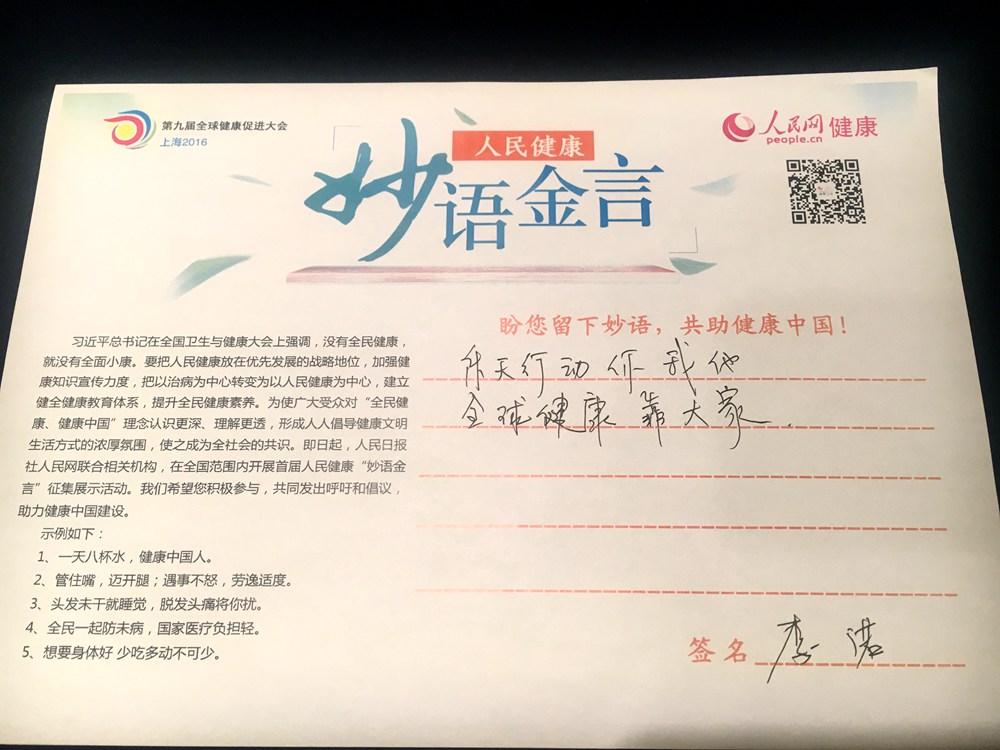 第九届全球健康促进大会
上海2016
人民健康
妙语金言
人民网 健康
people.cn
习近平总书记在全国卫生与健康大会上强调，没有全民健康，
就没有全面小康。要把人民健康放在优先发展的战略地位，加强健
康知识宣传力度，把以治病为中心转变为以人民健康为中心，建立
健全健康教育体系，提升全民健康素养。为使广大受众对“全民健
康、健康中国”理念认识更深、理解更透，形成人人倡导健康文明
生活方式的浓厚氛围，使之成为全社会的共识。即日起，人民日报
社人民网联合相关机构，在全国范围内开展首届人民健康“妙语金
言”征集展示活动。我们希望您积极参与，共同发出呼吁和倡议，
助力健康中国建设。
示例如下：
1、一天八杯水，健康中国人。
2、管住嘴，迈开腿；遇事不怒，劳逸适度。
3、头发未干就睡觉，脱发头痛将你扰。
4、全民一起防未病，国家医疗负担轻。
5、想要身体好 少吃多动不可少。
盼您留下妙语，共助健康中国！
天行动你我他
全球健康靠大家.
签名 李诺